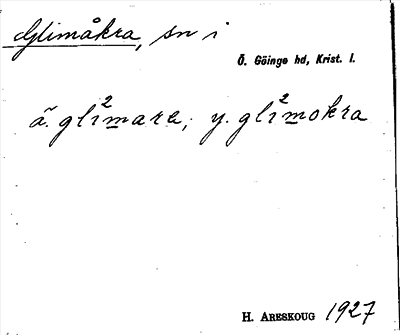 Glimåkra, sn i
Ö. Göinge hd, Krist. l.
ä. gli²mara; y. gli²mokra
H. ARESKOUG 1927